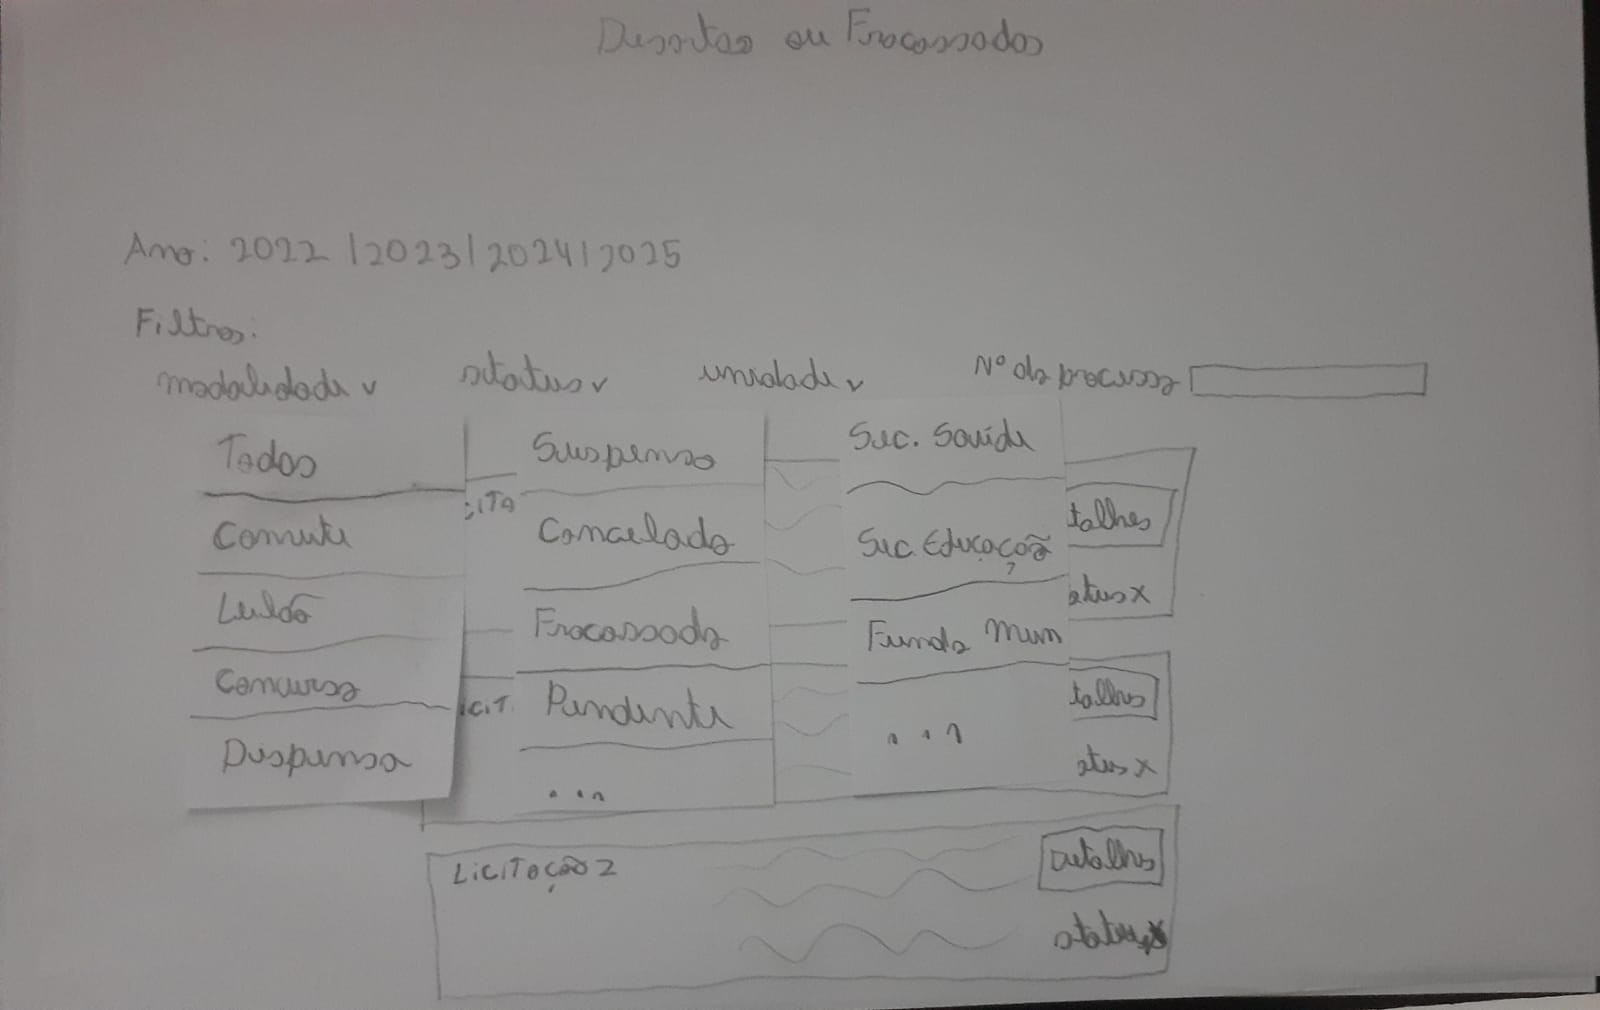 Desertas ou Fracassados
Ano: 2022 | 2023 | 2024 | 2025
Filtros:
modalidade v status v unidade v Nº do processo
Todos
Convite
Leilão
Concurso
Dispensa
Suspenso
Cancelado
Fracassado
Pendente
...
Sec. Saúde
Sec. Educação
Fundo Mun
...
CITA
talhes
atus x
ICIT.
talhes
atus x
LICITAÇÃO 2
Detalhes
status x